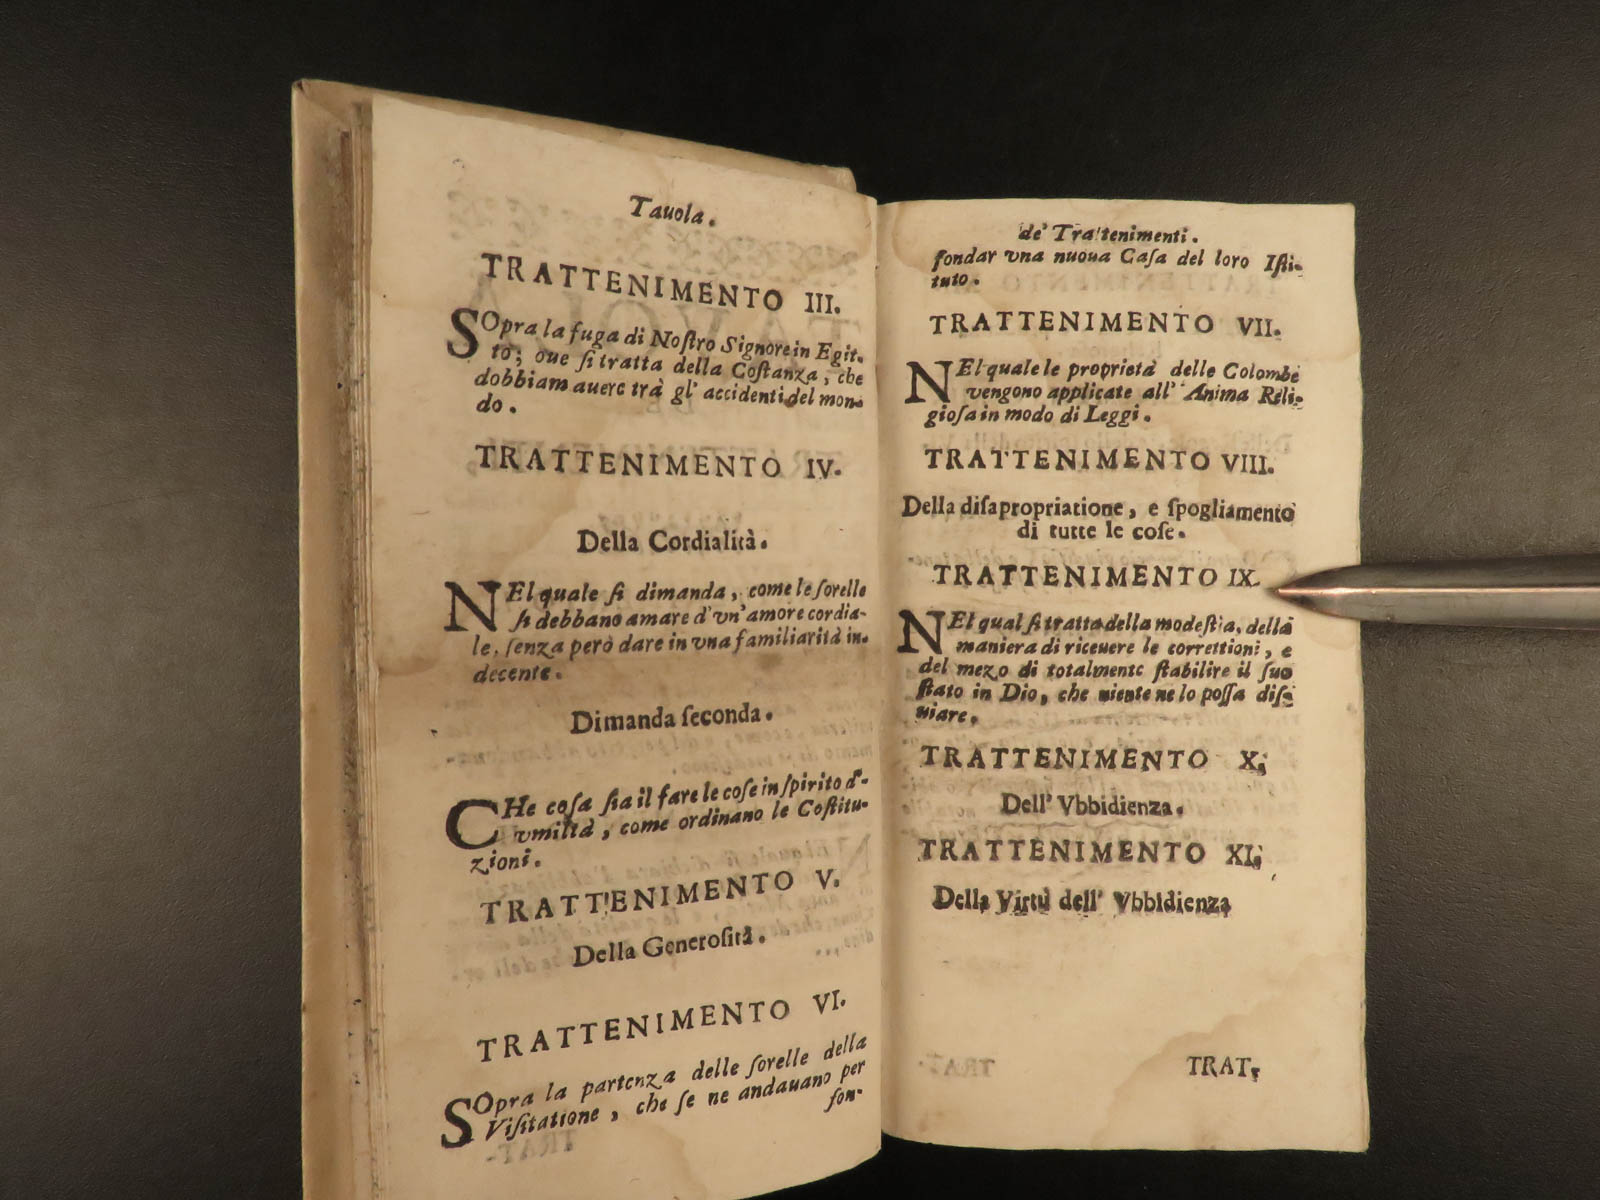 Tauola.
TRATTENIMENTO III.
SOpra la fuga di Noſtro Signore in Egit-
to; oue ſi tratta della Coſtanza, che
dobbiam auere trà gl' accidenti del mon-
do.
TRATTENIMENTO IV.
Della Cordialità.
NEl quale ſi dimanda, come le ſorelle
ſi debbano amare d'vn'amore cordia-
le, ſenza però dare in vna familiarità in-
decente.
Dimanda ſeconda.
CHe coſa ſia il fare le coſe in ſpirito d'-
vmiltà, come ordinano le Coſtitu-
zioni.
TRATTENIMENTO V.
Della Generoſità.
TRATTENIMENTO VI.
SOpra la partenza delle ſorelle della
Viſitatione, che ſe ne andauano per
fon-
de' Trattenimenti.
fondar vna nuoua Caſa del loro Iſti-
tuto.
TRATTENIMENTO VII.
NEl quale le proprietà delle Colombe
vengono applicate all' Anima Reli-
gioſa in modo di Leggi.
TRATTENIMENTO VIII.
Della diſapropriatione, e ſpogliamento
di tutte le coſe.
TRATTENIMENTO IX.
NEl qual ſi tratta della modeſtia, della
maniera di riceuere le correttioni, e
del mezo di totalmente ſtabilire il ſuo
ſtato in Dio, che niente ne lo poſſa diſa
uiare.
TRATTENIMENTO X.
Dell' Vbbidienza.
TRATTENIMENTO XI.
Della Virtù dell' Vbbidienza
TRAT-